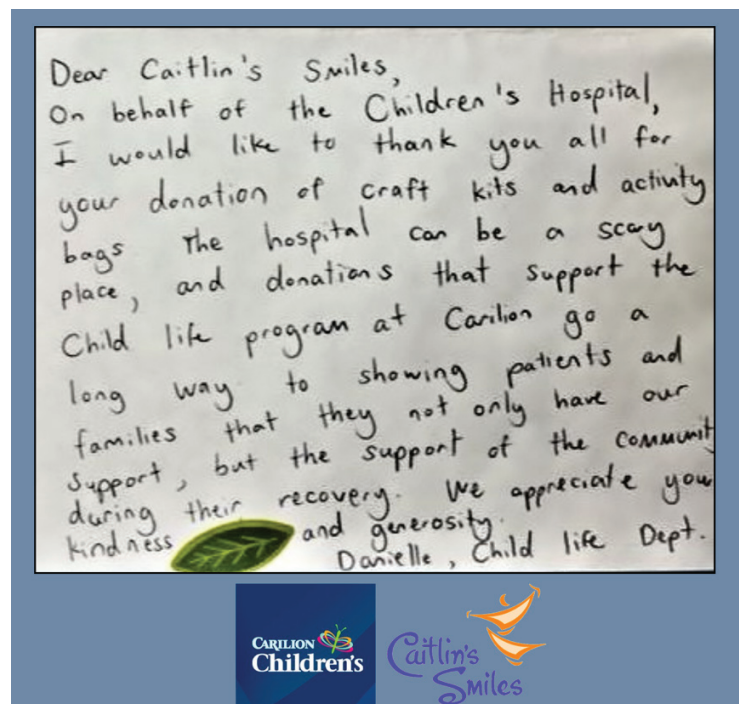 Dear Caitlin's Smiles,
On behalf of the Children's Hospital,
I would like to thank you all for
your donation of craft kits and activity
bags The hospital can be a scary
place, and donations that support the
Child life program at Carilion go a
long way to showing patients and
families that they not only have our
support, but the support of the communit
during their recovery. We appreciate you
kindness and generosity.
Danielle, Child life Dept.
CARILION
Children's
Caitlin's
Smiles